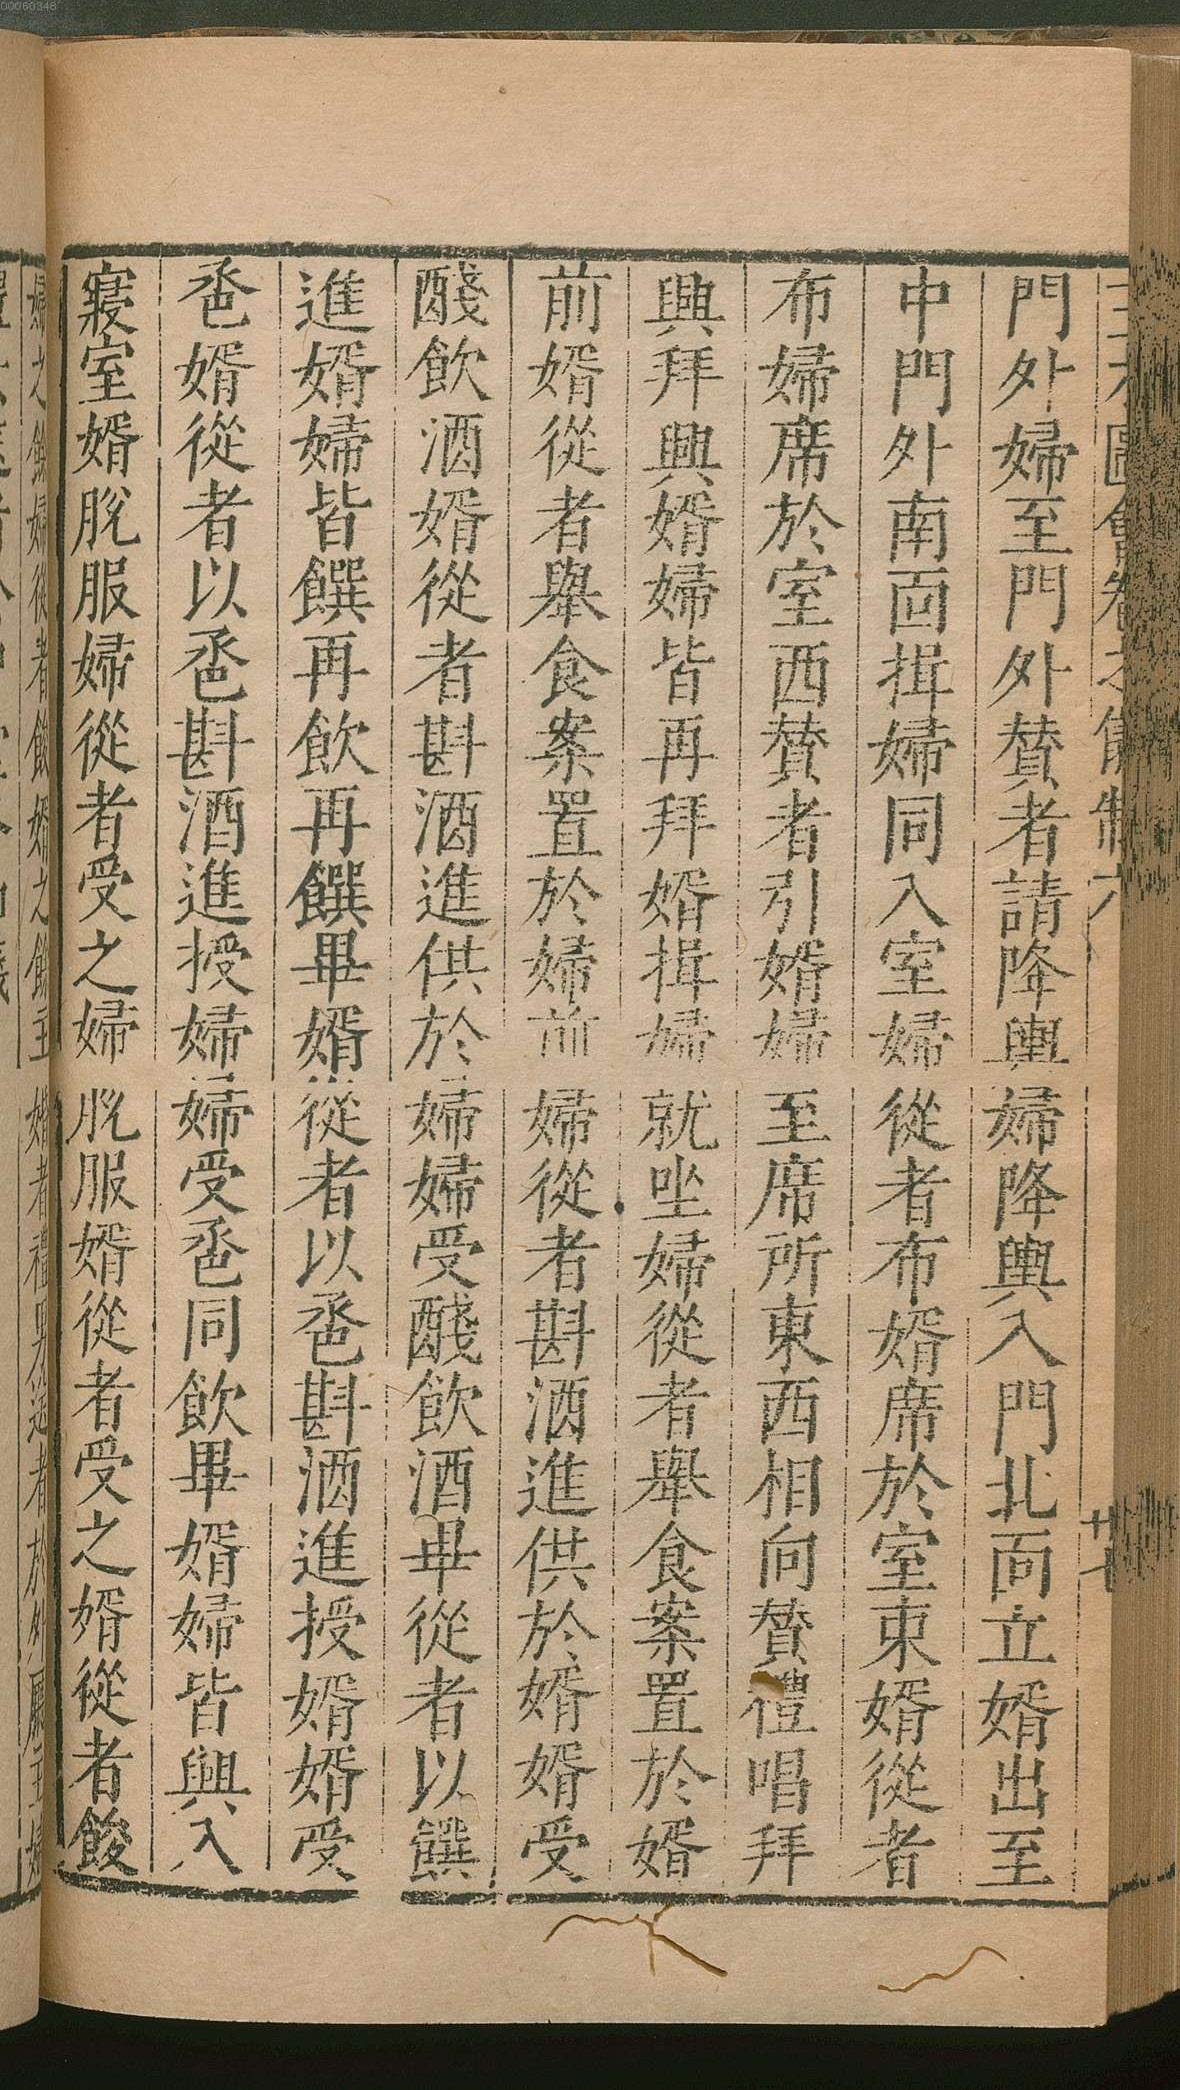 00060348
門外婦至門外贊者請降輿婦降輿入門北面立婿出至
中門外南面揖婦同入室婦從者布婿席於室東婿從者
布婦席於室西贊者引婿婦至席所東西相向贊禮唱拜
興拜興婿婦皆再拜婿揖婦就坐婦從者舉食案置於婿
前婿從者舉食案置於婦前婦從者斟酒進供於婿婿受
醆飲酒婿從者斟酒進供於婦婦受醆飲酒畢從者以饌
進婿婦皆饌再飲再饌畢婿從者以巹斟酒進授婿婿受
巹婿從者以巹斟酒進授婦婦受巹同飲畢婿婦皆興入
寢室婿脫服婦從者受之婦脫服婿從者受之婿從者餕
婦之餘婦從者餕婿之餘主婚者禮男送者於外廳主婦